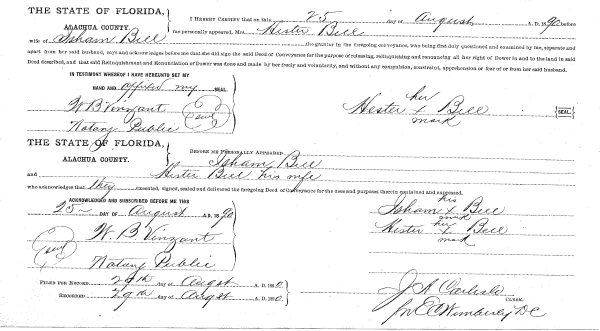 THE STATE OF FLORIDA,
ALACHUA COUNTY.
I HEREBY CERTIFY that on this 25 day of August A.D. 1890 before
me personally appeared Mrs. Hester Bell
wife of Isham Bell the grantor in the foregoing conveyance, who being first duly questioned and examined by me, separate and
apart from her said husband, says and acknowledges before me that she did sign the said Deed of Conveyance for the purpose of releasing, relinquishing and renouncing all her right of Dower in and to the land in said
Deed described, and that said Relinquishment and Renunciation of Dower was done and made by her freely and voluntarily, and without any compulsion, constraint, apprehension or fear of or from her said husband.
IN TESTIMONY WHEREOF I HAVE HEREUNTO SET MY
HAND AND affixed my SEAL
W. B. Vinzant
Seal
Notary Public
her
Hester x Bell
mark
SEAL.
THE STATE OF FLORIDA,
ALACHUA COUNTY.
BEFORE ME PERSONALLY APPEARED
Isham Bell
and Hester Bell his wife
who acknowledges that they executed, signed, sealed and delivered the foregoing Deed of Conveyance for the uses and purposes therein explained and expressed.
ACKNOWLEDGED AND SUBSCRIBED BEFORE ME THIS
25 DAY OF August A.D. 1890
his
Isham x Bell
mark
W. B. Vinzant
her
Hester x Bell
mark
Seal
Notary Public
FILED FOR RECORD 29th day of August A. D. 1890
RECORDED 29th day of August A. D. 1890
J A Carlisle
CLERK.
pr E C Wimberly DC